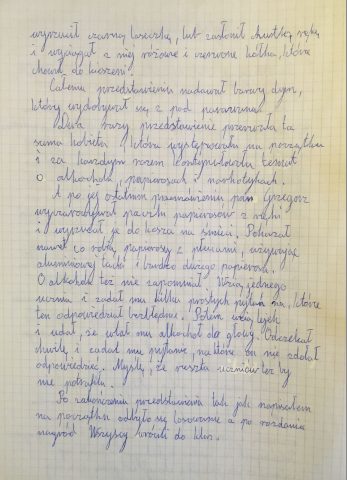 wyrzucił czarną laseczkę, lub zasłonił chustką rękę
i wyciągał z niej różowe i czerwone kółka, które
chował do kieszeni.
Całemu przedstawieniu nadawał barwy dym,
który wydobywał się z pod parawanu.
Dwa razy przedstawienie przerwała ta
sama kobieta, która występowała na początku
i za każdym razem kontynuowała temat
o alkoholu, papierosach i narkotykach.
A po jej ostatnim przemówieniu pan Grzegorz
wyczarowywał paczki papierosów z ręki
i wyrzucał je do kosza na śmieci. Pokazał
nawet co robią papierosy z płucami, używając
aluminiowej tacki i bardzo dużego papierosa.
O alkoholu też nie zapomniał. Wziął jednego
ucznia i zadał mu kilka prostych pytań na, które
ten odpowiedział bezbłędnie. Potem wziął lejek
i udał, że wlał mu alkohol do głowy. Odczekał
chwilę i zadał mu pytanie, na które on nie zdołał
odpowiedzieć. Myślę, że reszta uczniów też by
nie potrafiła.
Po zakończeniu przedstawienia tak jak napisałem
na początku odbyło się losowanie a po rozdaniu
nagród Wszyscy wrócili do klas.